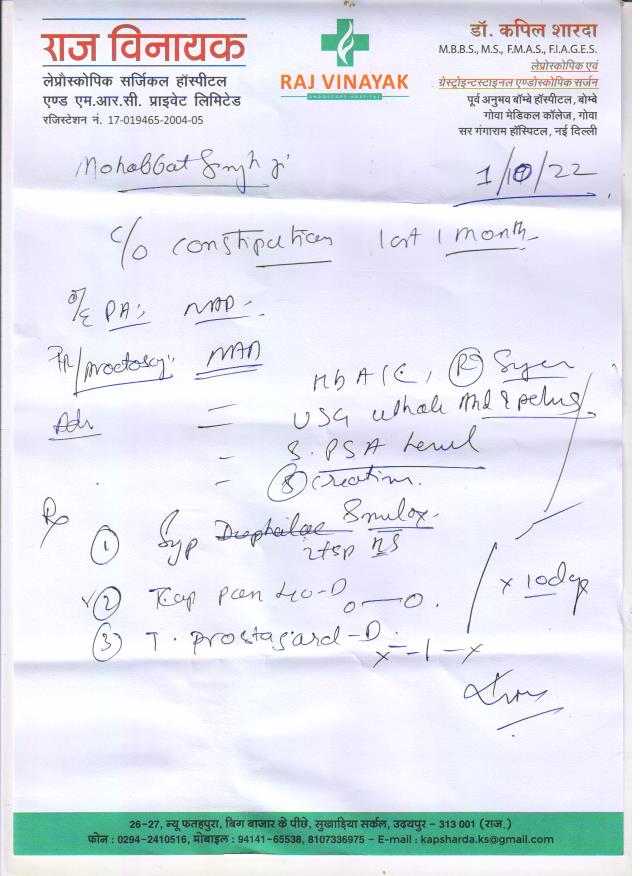 राज विनायक
लेप्रौस्कोपिक सर्जिकल हॉस्पीटल
एण्ड एम.आर.सी. प्राइवेट लिमिटेड
रजिस्टेशन नं. 17-019465-2004-05
RAJ VINAYAK
ENDOSCOPY HOSPITAL
डॉ. कपिल शारदा
M.B.B.S., M.S., F.M.A.S., F.I.A.G.E.S.
लेप्रोस्कोपिक एवं
ग्रेस्ट्रोइन्टस्टाइनल एण्डोस्कोपिक सर्जन
पूर्व अनुभव बॉम्बे हॉस्पीटल, बोम्बे
गोवा मेडिकल कॉलेज, गोवा
सर गंगाराम हॉस्पिटल, नई दिल्ली
Mohabbat Singh ji
1/10/22
c/o constipation last 1 month
O/E PA: NAD
PR/proctoscopy: NAD
HbA1C, (R) Sugar
Adv = USG whole Abd & pelvis
= S. PSA Level
- (S) Creatinine
Rx
(1) Syp Smulax
2tsp HS
(2) Cap pan 40-D o—o x 10 days
(3) T. Prostagard-D
x-1-x
26-27, न्यू फतहपुरा, बिग बाजार के पीछे, सुखाड़िया सर्कल, उदयपुर - 313 001 (राज.)
फोन : 0294-2410516, मोबाइल : 94141-65538, 8107336975 - E-mail : kapsharda.ks@gmail.com